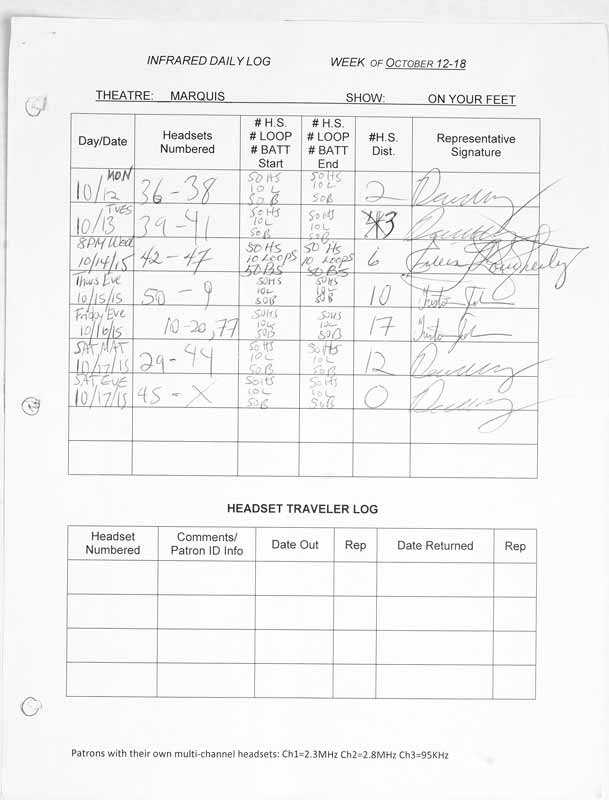 INFRARED DAILY LOG WEEK OF OCTOBER 12-18
THEATRE: MARQUIS SHOW: ON YOUR FEET
Day/Date
Headsets
Numbered
# H.S.
# LOOP
# BATT
Start
# H.S.
# LOOP
# BATT
End
#H.S.
Dist.
Representative
Signature
MON
10/12
36-38
50HS
10L
50B
50HS
10L
50B
2
TUES
10/13
39-41
50HS
10L
50B
50HS
10L
50B
3
8PM Wed
10/14/15
42-47
50 HS
10 Loops
50 BS
50 HS
10 Loops
50 BS
6
Thurs Eve
10/15/15
50-9
50HS
10L
50B
50HS
10L
50B
10
Friday Eve
10/16/15
10-20,77
50HS
10L
50B
50HS
10L
50B
17
SAT MAT
10/17/15
29-44
50HS
10L
50B
50HS
10L
50B
12
SAT, EVE
10/17/15
45-X
50HS
10L
50B
50HS
10L
50B
0
HEADSET TRAVELER LOG
Headset
Numbered
Comments/
Patron ID Info
Date Out
Rep
Date Returned
Rep
Patrons with their own multi-channel headsets: Ch1=2.3MHz Ch2=2.8MHz Ch3=95KHz